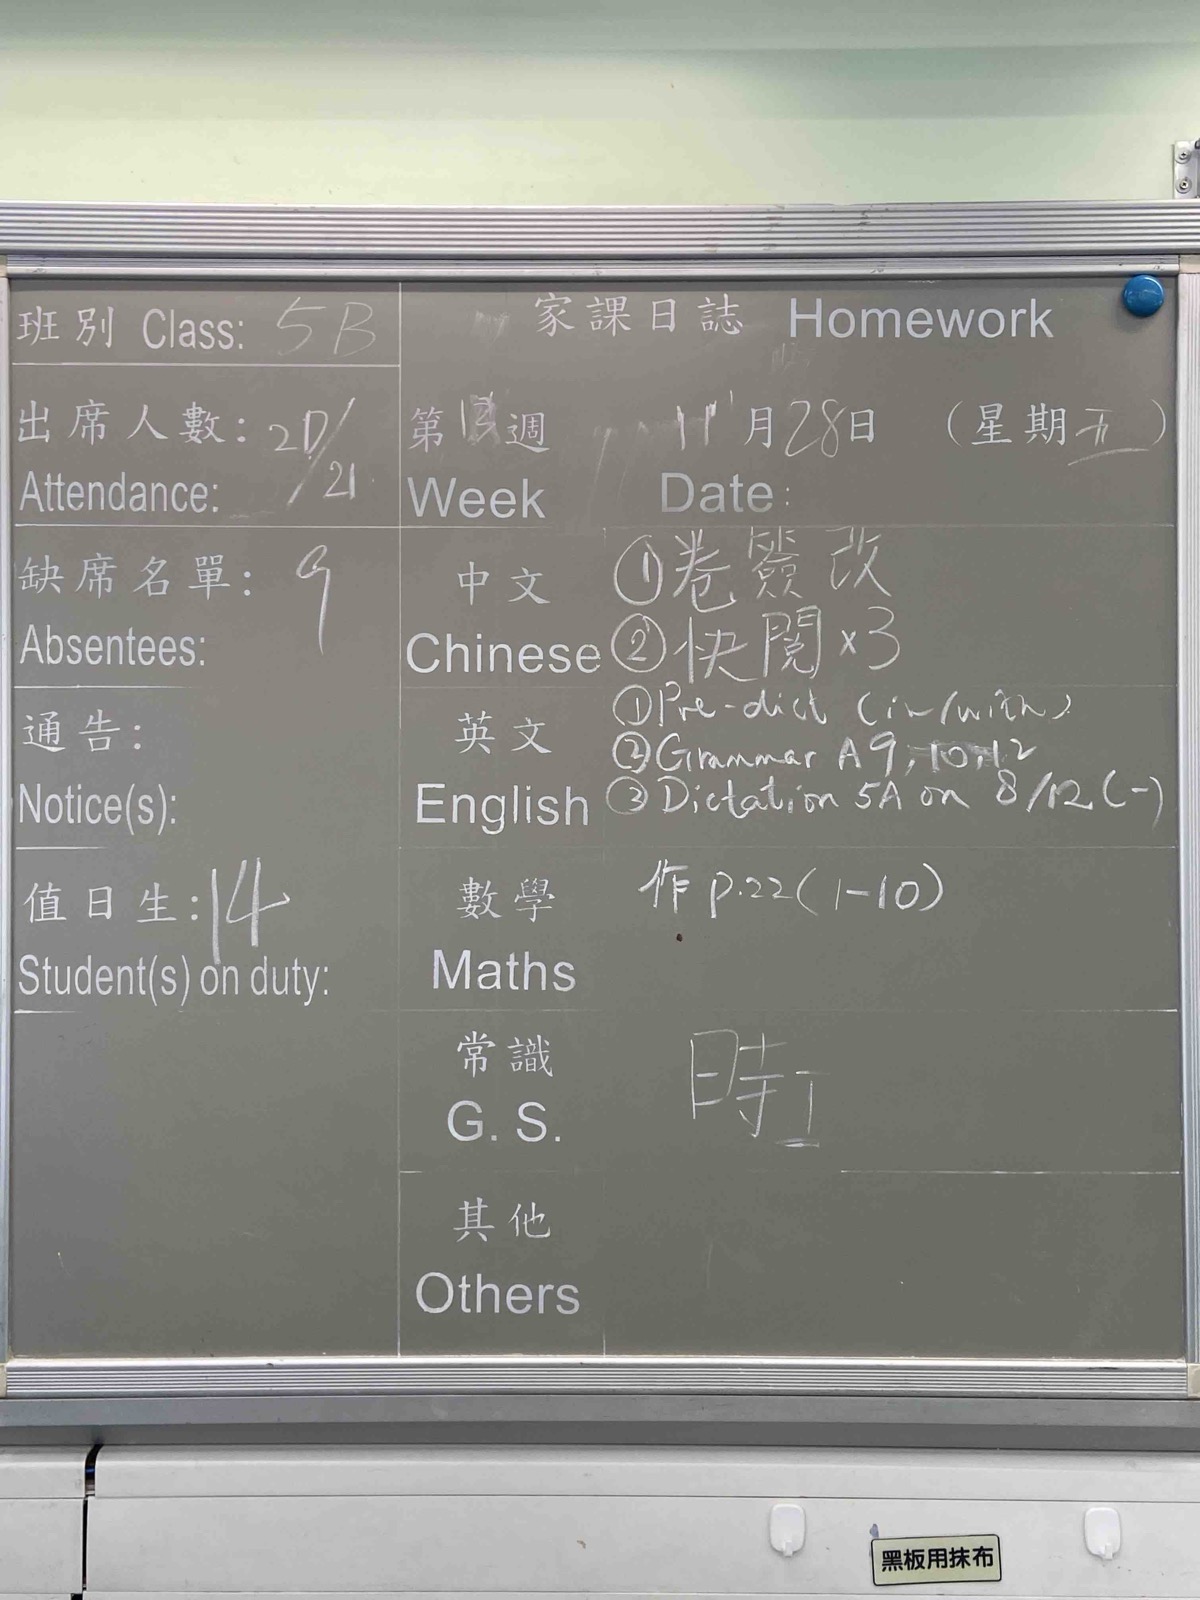 班別 Class: 5B
出席人數: 20/21
Attendance:
缺席名單: 9
Absentees:
通告:
Notice(s):
值日生: 14
Student(s) on duty:
家課日誌 Homework
第 週 11月28日 (星期五)
Week Date:
中文
Chinese
①卷簽改
②快閱×3
英文
English
①Pre-dict (in/with)
②Grammar A9, 10, 12
③Dictation 5A on 8/12 (一)
數學
Maths
作 p.22 (1-10)
常識
G. S.
時工
其他
Others
黑板用抹布